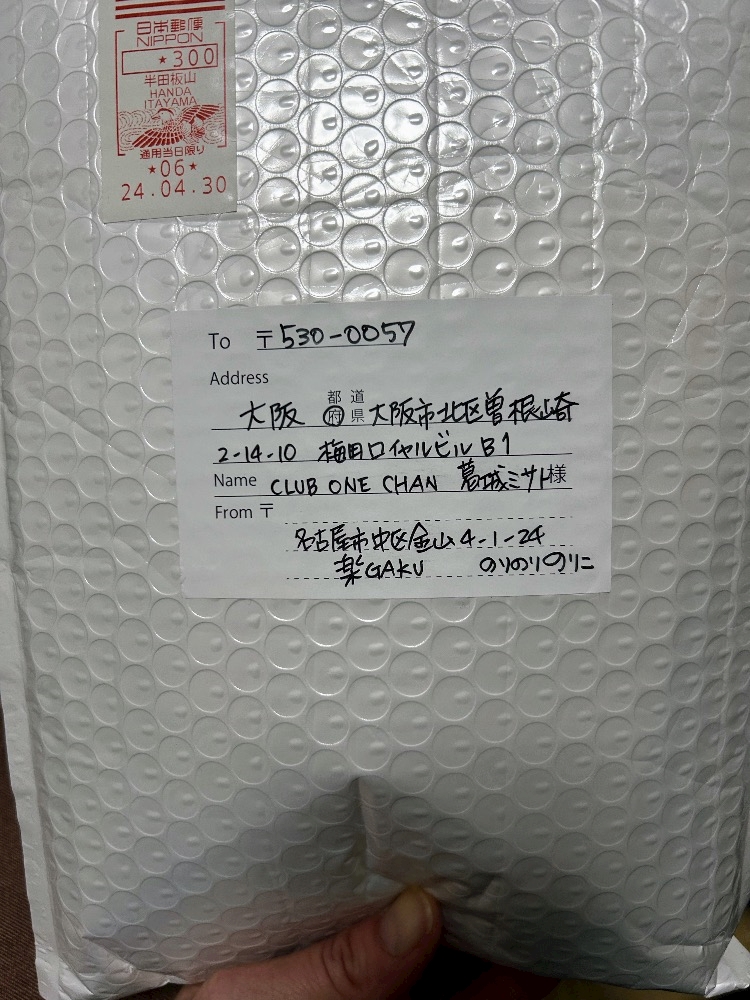 日本郵便
NIPPON
★300
半田板山
HANDA
ITAYAMA
通用当日限り
★06★
24.04.30
To 〒530-0057
Address
都 道
大阪 府 県 大阪市北区曽根崎
2-14-10 梅田ロイヤルビル B1
Name CLUB ONE CHAN 葛城ミサト様
From 〒
名古屋市中区金山4-1-24
楽GAKU のりのりのりこ